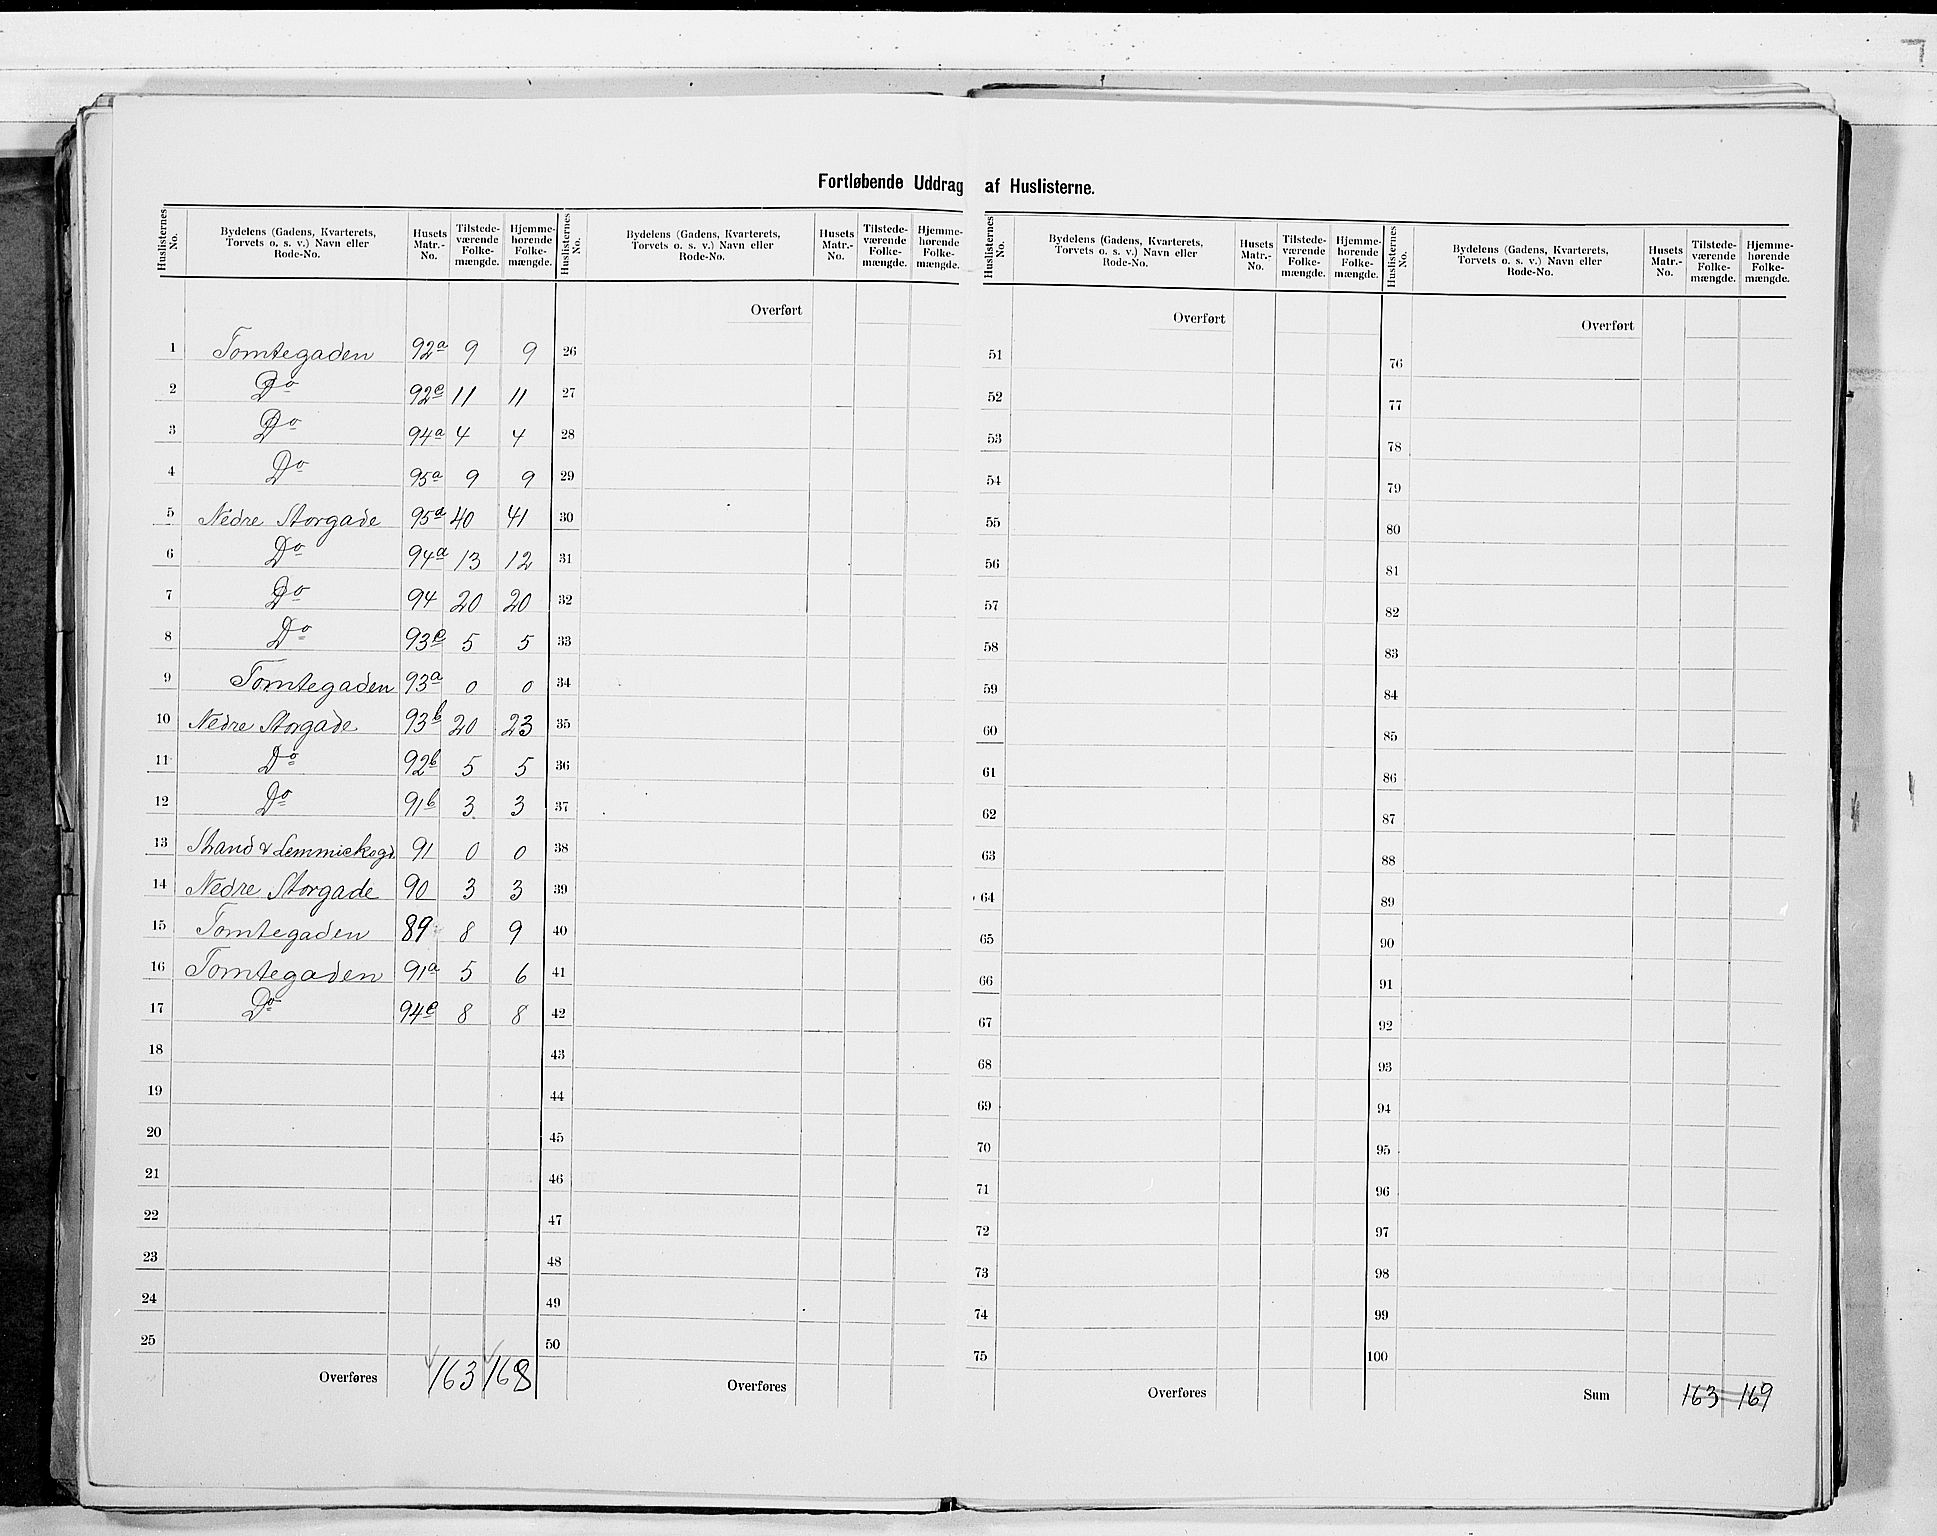 Fortløbende Uddrag af Huslisterne.
Huslisternes No. | Bydelens (Gadens, Kvarterets, Torvets o. s. v.) Navn eller Rode-No. | Husets Matr.-No. | Tilstedeværende Folkemængde. | Hjemmehørende Folkemængde. | Huslisternes No. | Bydelens (Gadens, Kvarterets, Torvets o. s. v.) Navn eller Rode-No. | Husets Matr.-No. | Tilstedeværende Folkemængde. | Hjemmehørende Folkemængde.
Overført
1 Tomtegaden 92a 9 9 26
2 Do 92c 11 11 27
3 Do 94a 4 4 28
4 Do 95a 9 9 29
5 Nedre Storgade 95a 40 41 30
6 Do 94a 13 12 31
7 Do 94 20 20 32
8 Do 93c 5 5 33
9 Tomtegaden 93a 0 0 34
10 Nedre Storgade 93b 20 23 35
11 Do 92b 5 5 36
12 Do 91b 3 3 37
13 Strand & Lemmickegd. 91 0 0 38
14 Nedre Storgade 90 3 3 39
15 Tomtegaden 89 8 9 40
16 Tomtegaden 91a 5 6 41
17 Do 94c 8 8 42
18 43
19 44
20 45
21 46
22 47
23 48
24 49
25 50
Overføres 163 168 Overføres
Huslisternes No. | Bydelens (Gadens, Kvarterets, Torvets o. s. v.) Navn eller Rode-No. | Husets Matr.-No. | Tilstedeværende Folkemængde. | Hjemmehørende Folkemængde. | Huslisternes No. | Bydelens (Gadens, Kvarterets, Torvets o. s. v.) Navn eller Rode-No. | Husets Matr.-No. | Tilstedeværende Folkemængde. | Hjemmehørende Folkemængde.
Overført Overført
51 76
52 77
53 78
54 79
55 80
56 81
57 82
58 83
59 84
60 85
61 86
62 87
63 88
64 89
65 90
66 91
67 92
68 93
69 94
70 95
71 96
72 97
73 98
74 99
75 100
Overføres Sum 163 169